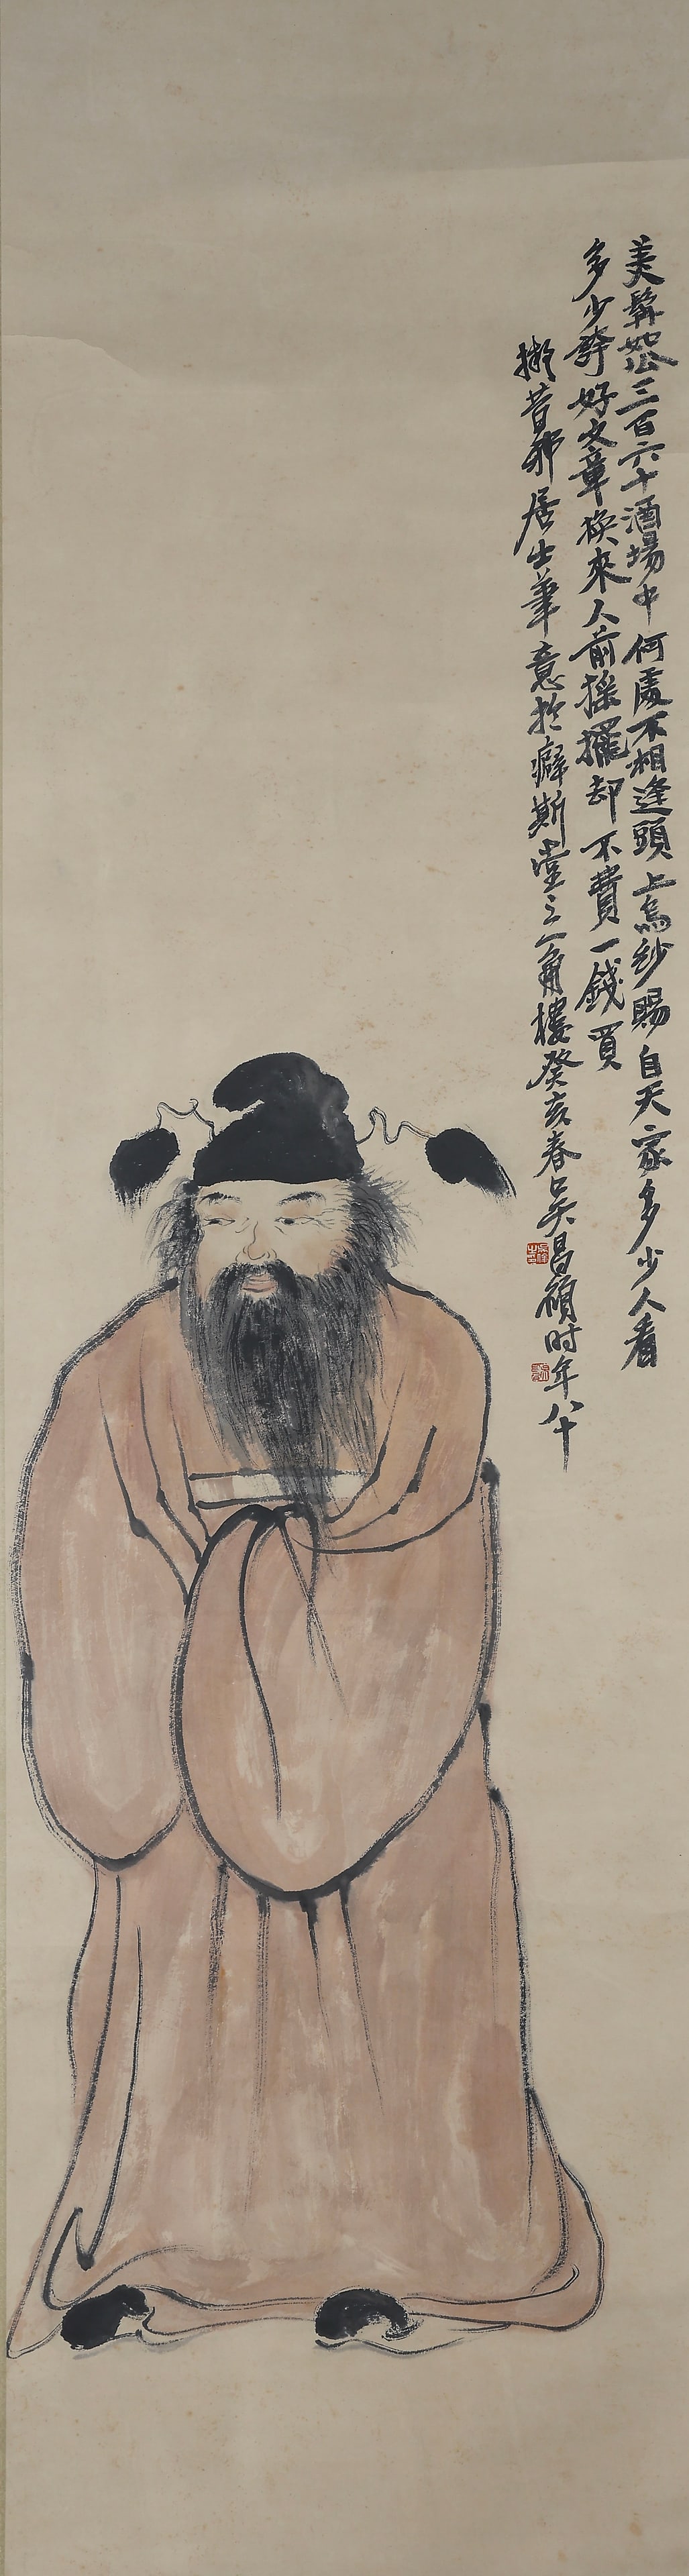 美髯翁三百六十酒場中何處不相逢頭上烏紗賜自天家多少人看
多少誇好文章換來人前搖擺却不費一錢買
擬昔邪居士筆意於癖斯堂之一角樓癸亥春吳昌碩時年八十